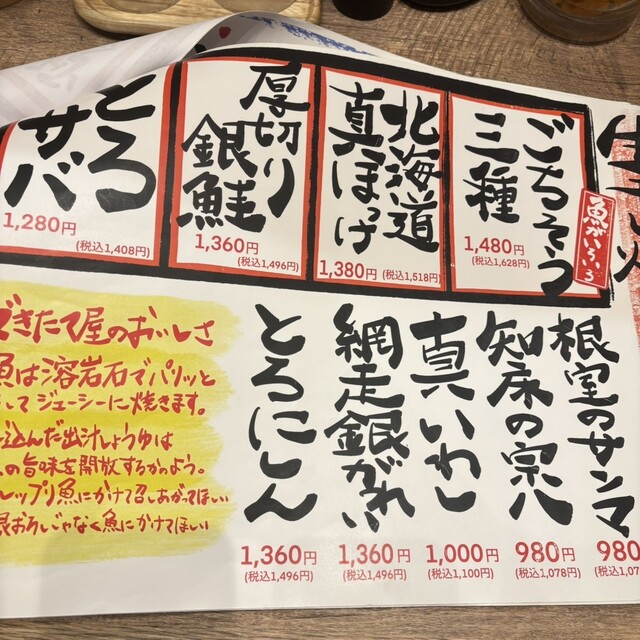 ごちそう
三種
魚がいろいろ
1,480円
(税込1,628円)
北海道
真ほっけ
1,380円
(税込1,518円)
厚切り
銀鮭
1,360円
(税込1,496円)
とろ
サバ
1,280円
(税込1,408円)
根室のサンマ
980
(税込1,07
知床の宗八
980円
(税込1,078円)
真いわし
1,000円
(税込1,100円)
網走銀がれい
1,360円
(税込1,496円)
とろにしん
1,360円
(税込1,496円)
できたて屋のおいしさ
魚は溶岩石でパリッと
してジューシーに焼きます。
込んだ出汁しょうゆは
の旨味を開放するかつよう。
レップリ魚にかけて召しあがってほしい
根おろしじゃなく魚にかけてほしい